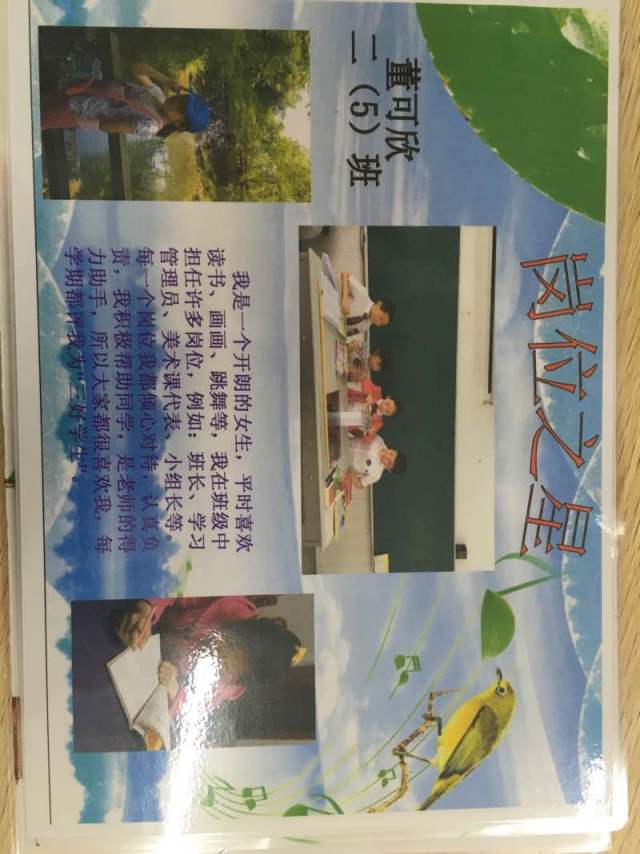 岗位之星
董可欣
二（5）班
我是一个开朗的女生，平时喜欢
读书、画画、跳舞等，我在班级中
担任许多岗位，例如：班长、学习
管理员、美术课代表、小组长等。
每一个岗位我都倾心对待，认真负
责，我积极帮助同学，是老师的得
力助手，所以大家都很喜欢我，每
学期都评我为“三好学生”。